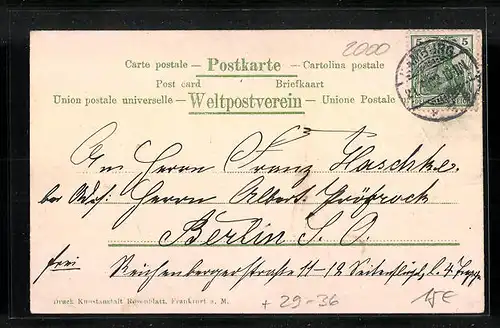 2000
Carte postale – Postkarte – Cartolina postale
Post card Briefkaart
Union postale universelle – Weltpostverein – Unione Postale
5 5
HAMBURG
An Herrn Franz Haschke
bei Adr: Herrn Albert Pröfrock
Berlin S. O.
frei Reichenbergerstraße 11–12 Seitenflügel, l. 4 Treppe
Druck Kunstanstalt Rosenblatt, Frankfurt a. M.
+ 29–36